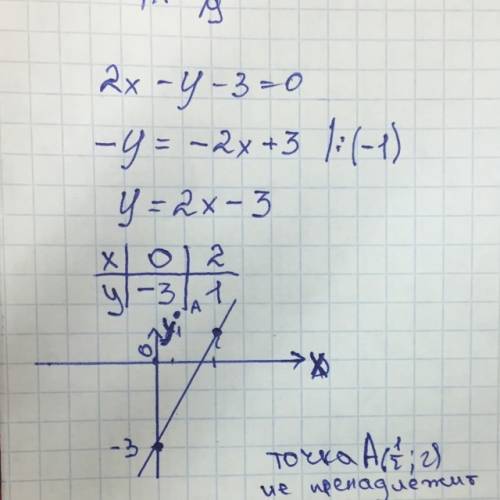 y
2x - y - 3 = 0
-y = -2x + 3 |:(-1)
y = 2x - 3
x | 0 | 2
y | -3 | 1
A
0
-3
точка A(1/2; 2)
не пренадлежит